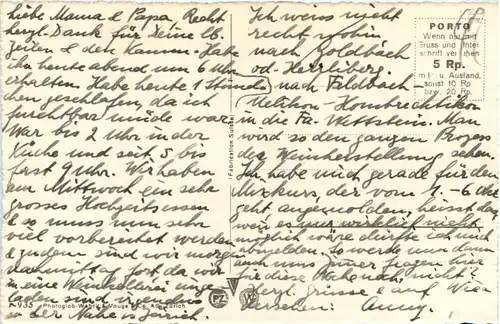 Liebe Mama & Papa. Recht
herzl. Dank für Deine lb.
Zeilen & den Kamm. Habe
ihn heute abend um 6 Uhr
erhalten. Habe heute 1 Stünd-
chen geschlafen, da ich
furchtbar müde war.
War bis 2 Uhr in der
Küche und seit 5 bis
fast 9 Uhr. Wir haben
am Mittwoch ein sehr
grosses Hochzeitsessen
& so muss nun sehr
viel vorbereitet werden
& zudem sind wir morgen
nachmittag fort da wir
in eine Weinkellerei einge-
laden sind irgendwo
in der Nähe v. Zürich.
Ich weiss nicht
recht wohin
nach Goldbach
od. Herrliberg.
nach Feldbach-
Uetikon-Hombrechtikon
in die Fa. Wettstein. Man
wird so den ganzen Prozess
der Weinherstellung sehen.
Ich habe mich gerade für den
Mixkurs, der vom 1.-6. Okt
geht angemolden, heisst das
wenn es nur wirklich nicht
möglich wäre dürfte ich mich
abmelden. So werde nun dann
am uns immer liegen hier
für diese Woche noch nicht?
Herzl. Grüsse & auf Wie-
dersehen: Anny.
PORTO
Wenn nur mit
Gruss und Unter
schrift versehen
5 Rp.
mit u. Ausland,
sonst 10 Rp
bzw. 20 Rp.
Fabrication Suisse
F 935 Photoglob-Wehrli & Vouga & Co. A.G. Zürich
PZ
W